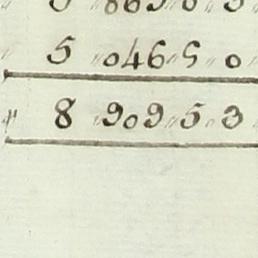 5 〃 046 〃 5 〃 0
〃 8 〃 909 〃 5 〃 3